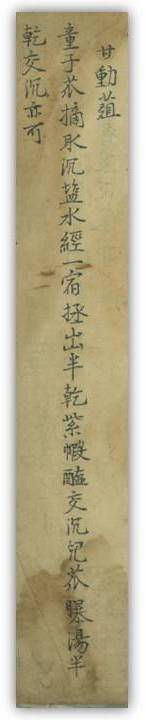 甘動葅
童子苽摘取沉塩水經一宿拯出半乾紫蝦醢交沉兒苽暴湯半
乾交沉亦可